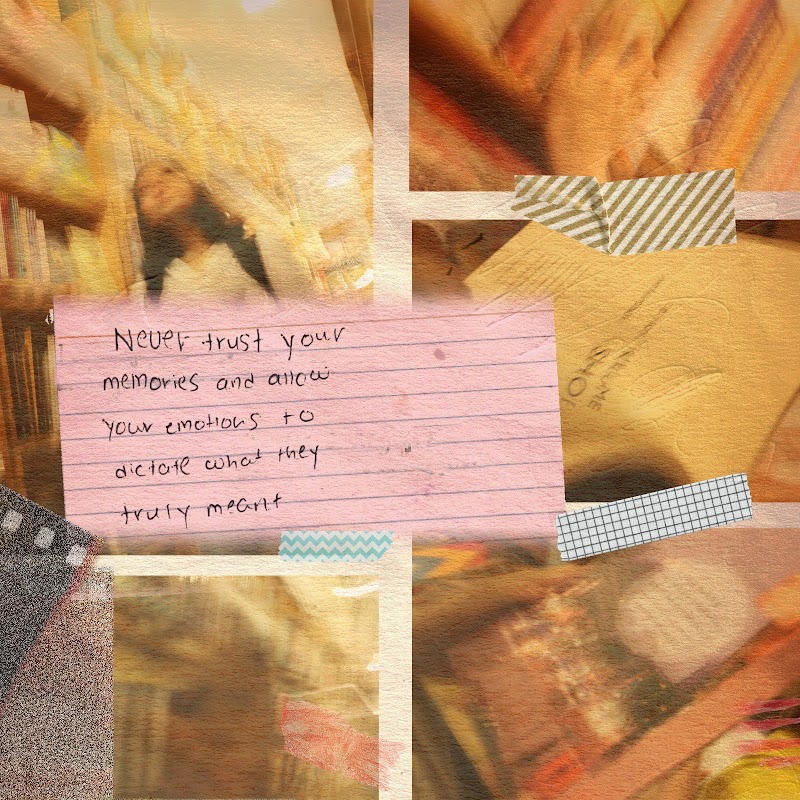 Never trust your
memories and allow
your emotions to
dictate what they
truly meant